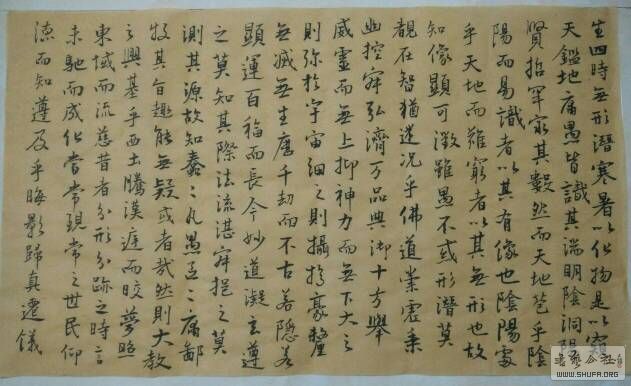 生四時無形潛寒暑以化物是以窺
天鑑地庸愚皆識其端明陰洞陽
賢哲罕窮其數然而天地苞乎陰
陽而易識者以其有像也陰陽處
乎天地而難窮者以其無形也故
知像顯可徵雖愚不惑形潛莫
覩在智猶迷況乎佛道崇虛乘
幽控寂弘濟万品典御十方舉
威靈而無上抑神力而無下大之
則弥於宇宙細之則攝於豪釐
無滅無生歷千劫而不古若隱若
顯運百福而長今妙道凝玄遵
之莫知其際法流湛寂挹之莫
測其源故知蠢〻凡愚區〻庸鄙
投其旨趣能無疑或者哉然則大教
之興基乎西土騰漢庭而皎夢照
東域而流慈昔者分形分跡之時言
未馳而成化當常現常之世民仰
德而知遵及乎晦影歸真遷儀
WWW.SHUFA.ORG